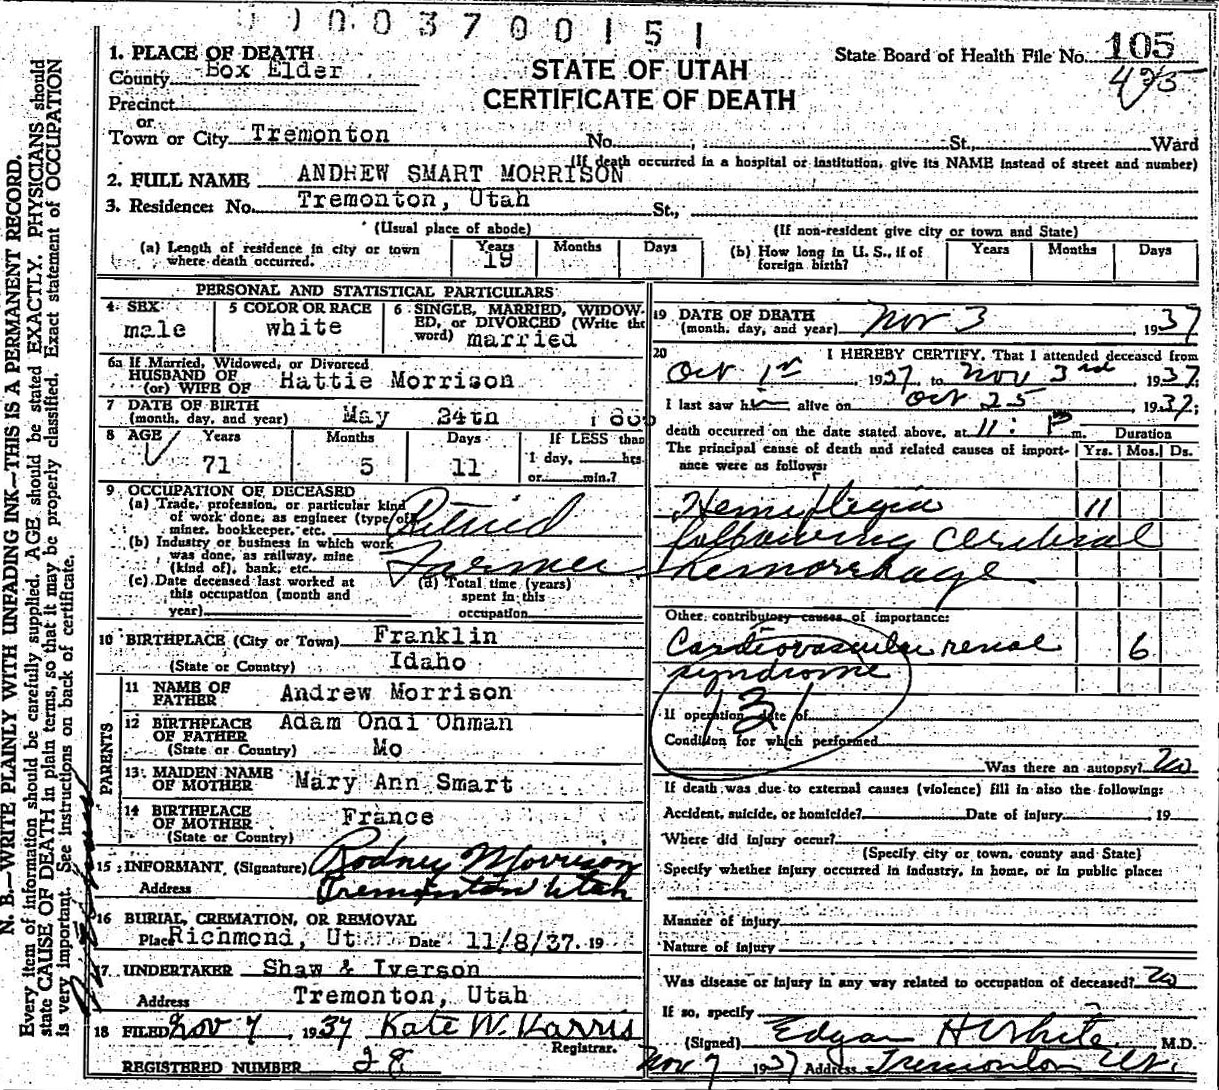 0003700151
State Board of Health File No. 105
425
STATE OF UTAH
CERTIFICATE OF DEATH
1. PLACE OF DEATH
County Box Elder
Precinct
or
Town or City Tremonton No. , St., Ward
(If death occurred in a hospital or institution, give its NAME instead of street and number)
2. FULL NAME ANDREW SMART MORRISON
3. Residence: No. Tremonton, Utah St.,
(Usual place of abode) (If non-resident give city or town and State)
(a) Length of residence in city or town where death occurred. Years 19 Months Days (b) How long in U. S., if of foreign birth? Years Months Days
PERSONAL AND STATISTICAL PARTICULARS
4 SEX male
5 COLOR OR RACE white
6 SINGLE, MARRIED, WIDOWED, or DIVORCED (Write the word) married
6a If Married, Widowed, or Divorced
HUSBAND OF
(or) WIFE OF Hattie Morrison
7 DATE OF BIRTH
(month, day, and year) May 24th
8 AGE Years 71 Months 5 Days 11 If LESS than 1 day, hrs. or min.?
9 OCCUPATION OF DECEASED
(a) Trade, profession, or particular kind
of work done, as engineer (type of)
miner, bookkeeper, etc. Retired
(b) Industry or business in which work
was done, as railway, mine
(kind of), bank, etc. Farmer
(c) Date deceased last worked at
this occupation (month and
year)
(d) Total time (years)
spent in this
occupation
10 BIRTHPLACE (City or Town) Franklin
(State or Country) Idaho
PARENTS
11 NAME OF FATHER Andrew Morrison
12 BIRTHPLACE OF FATHER Adam Ondi Ohman
(State or Country) Mo
13 MAIDEN NAME OF MOTHER Mary Ann Smart
14 BIRTHPLACE OF MOTHER France
(State or Country)
15 INFORMANT (Signature) Rodney Morrison
Address Tremonton Utah
16 BURIAL, CREMATION, OR REMOVAL
Place Richmond, Ut Date 11/8/37. 19
17 UNDERTAKER Shaw & Iverson
Address Tremonton, Utah
18 FILED Nov 7, 1937 Kate W. Harris
Registrar.
REGISTERED NUMBER 28
19 DATE OF DEATH
(month, day, and year) Nov 3, 1937
20 I HEREBY CERTIFY, That I attended deceased from
Oct 1st, 1937 to Nov 3rd, 1937.
I last saw him alive on Oct 25, 1937;
death occurred on the date stated above, at 11: P m. Duration
The principal cause of death and related causes of importance were as follows: Yrs. Mos. Ds.
Hemiplegia 11
following cerebral
hemorrhage
Other contributory causes of importance:
Cardiovascular renal 6
syndrome
131
If operation, date of
Condition for which performed
Was there an autopsy? No
If death was due to external causes (violence) fill in also the following:
Accident, suicide, or homicide? Date of injury , 19
Where did injury occur?
(Specify city or town, county and State)
Specify whether injury occurred in industry, in home, or in public place:
Manner of injury
Nature of injury
Was disease or injury in any way related to occupation of deceased? No
If so, specify
(Signed) Edgar H White, M.D.
Nov 7 1937 Address Tremonton Ut.
N. B.—WRITE PLAINLY WITH UNFADING INK—THIS IS A PERMANENT RECORD.
Every item of information should be carefully supplied. AGE should be stated EXACTLY. PHYSICIANS should
state CAUSE OF DEATH in plain terms, so that it may be properly classified. Exact statement of OCCUPATION
is very important. See instructions on back of certificate.